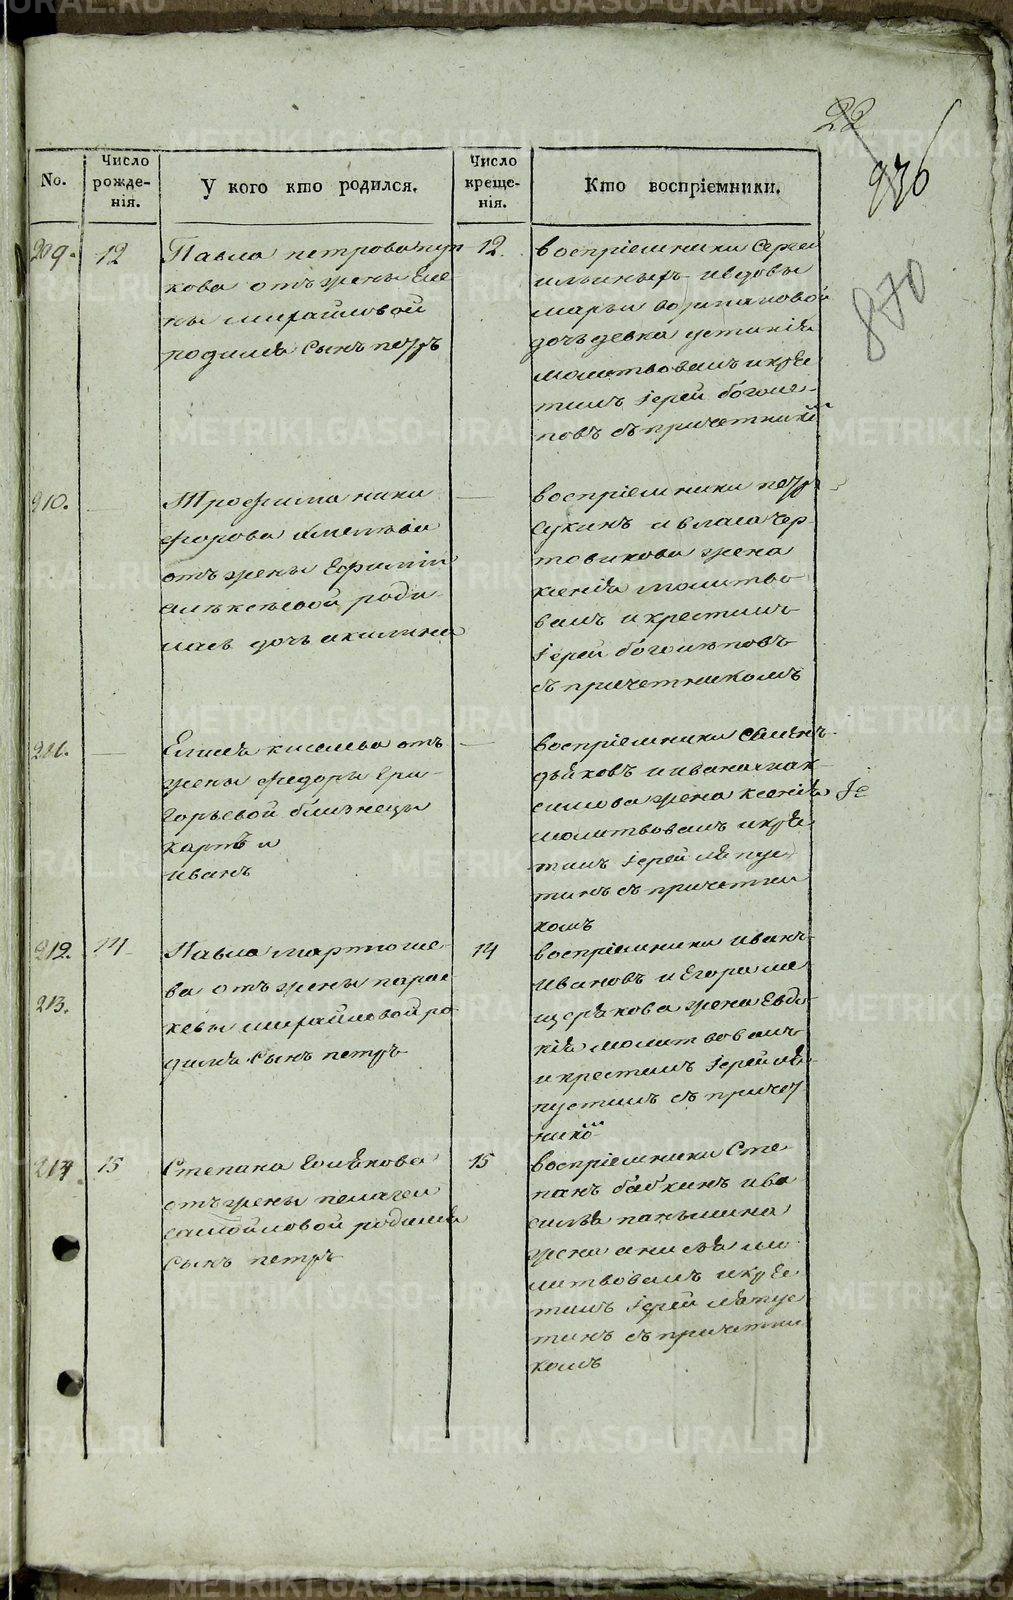 22
936
870
No.
Число рожде-нія.
У кого кто родился.
Число креще-нія.
Кто воспріемники.
209. 12
Павла петрова
кова отъ жены Еле
ны михайловой
родился сынъ петръ
12.
воспріемники Сергеи
и вдовы
марьи
дочь девка устинія
молитвовалъ и кре
тилъ Іерей боголе-
повъ съ причетники
210.
Трофима ники
форова
отъ жены Ефиміи
алексеевой роди
лась дочь акилина
воспріемники петръ
Сукинъ и власа чер
товикова жена
ксенія молитво
валъ и крестилъ
Іерей боголеповъ
съ причетникомъ
211.
Елисея киселева отъ
жены федоры Гри-
горьевой близнецы
карпъ и
иванъ
воспріемники Семенъ
дьяковъ и ивана мак
симова жена ксенія
молитвовалъ и кре
тилъ Іерей ляпус
тинъ съ причетни
комъ
212. 14
213.
Павла мартюше-
ва отъ жены парас
кевы михайловой ро
дился сынъ петръ
14
воспріемники иванъ
ивановъ и Егора ме
щерякова жена Евдо
кія молитвовалъ
и крестилъ Іерей ля
пустинъ съ причет
нико
214 15
Степана Емлекова
отъ жены пелагеи
самойловой родился
сынъ петръ
15
воспріемники Сте
панъ бабкинъ и ва
силья паньшина
жена анисья мо
литвовалъ и кре
тилъ Іерей ляпус
тинъ съ причетни
комъ
METRIKI.GASO-URAL.RU